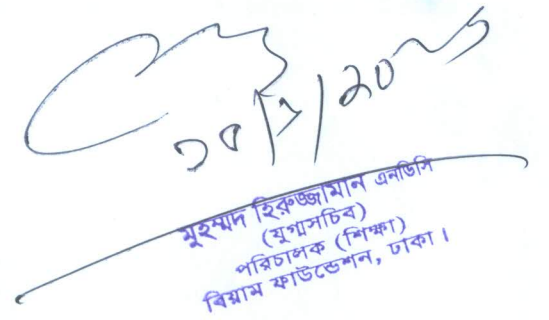 ১০/১/২০২১
মুহম্মদ হিরুজ্জামান এনডিসি
(যুগ্মসচিব)
পরিচালক (শিক্ষা)
বিয়াম ফাউন্ডেশন, ঢাকা।